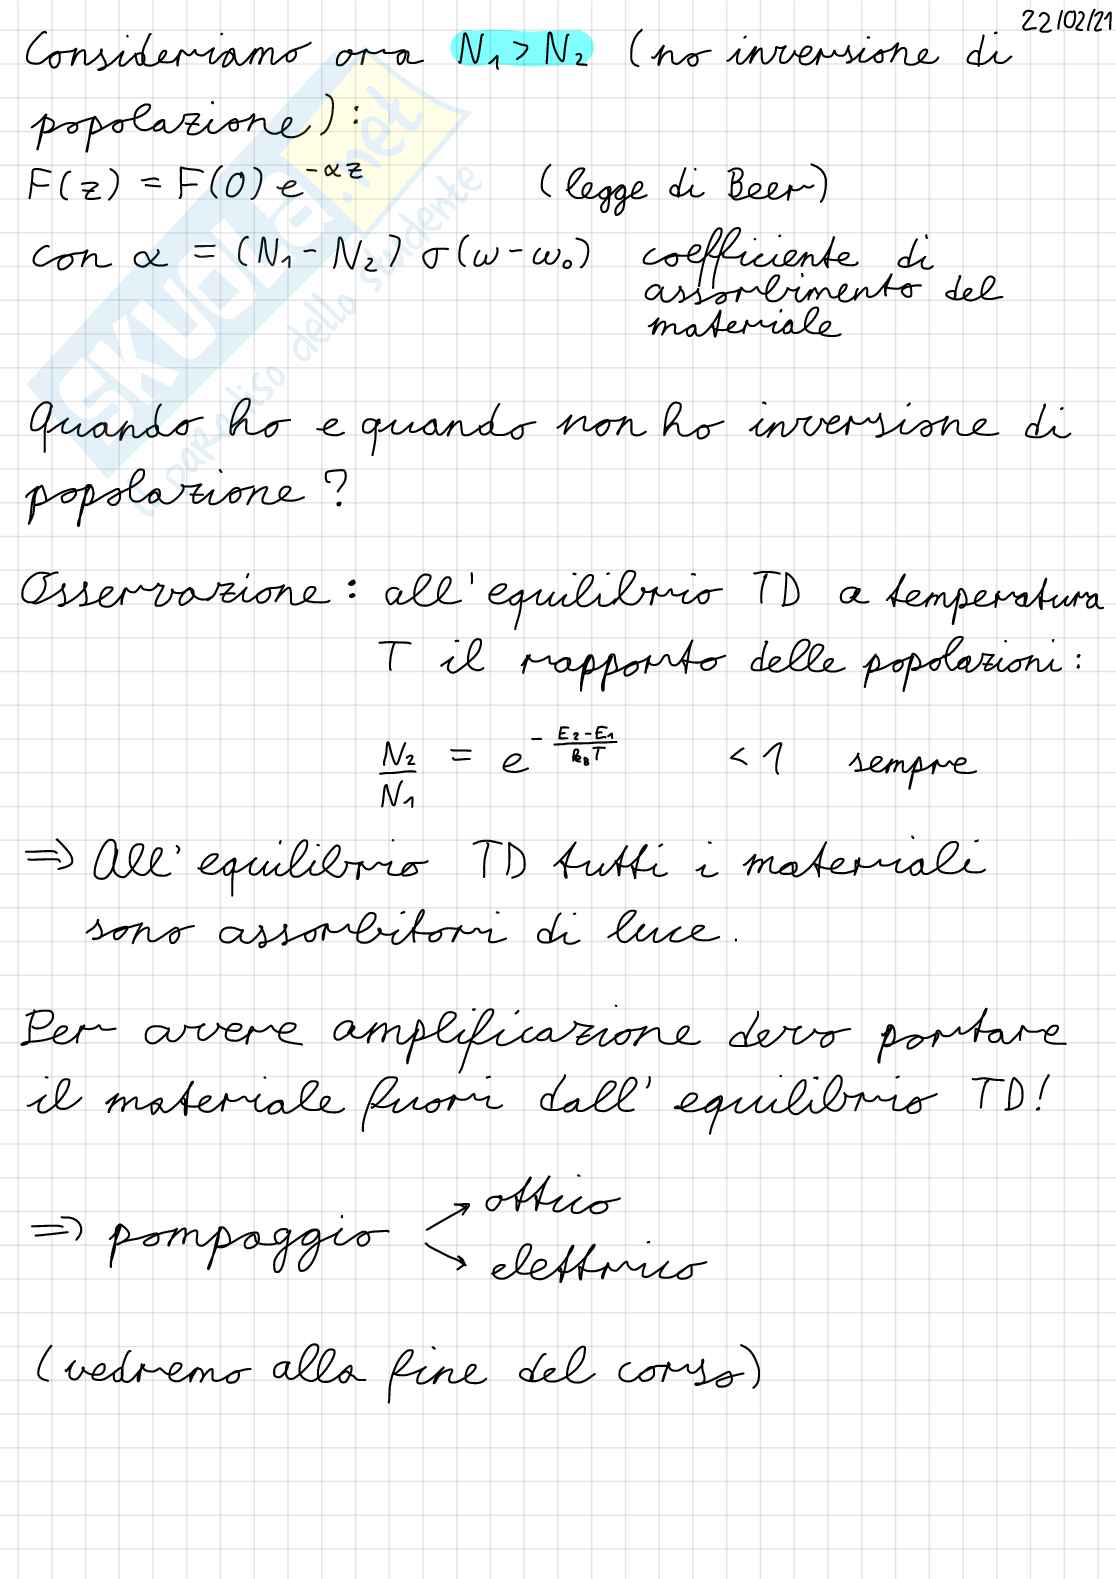 22/02/21
Consideriamo ora N₁ > N₂ (no inversione di
popolazione):
F(z) = F(0) e^{-αz} (legge di Beer)
con α = (N₁ - N₂) σ(ω - ω₀) coefficiente di
assorbimento del
materiale
Quando ho e quando non ho inversione di
popolazione?
Osservazione: all'equilibrio TD a temperatura
T il rapporto delle popolazioni:
N₂/N₁ = e^{-(E₂-E₁)/(k_BT)} < 1 sempre
⇒ All'equilibrio TD tutti i materiali
sono assorbitori di luce.
Per avere amplificazione devo portare
il materiale fuori dall'equilibrio TD!
⇒ pompaggio
↗ ottico
↘ elettrico
(vedremo alla fine del corso)
SKUOLA.net
il paradiso dello studente